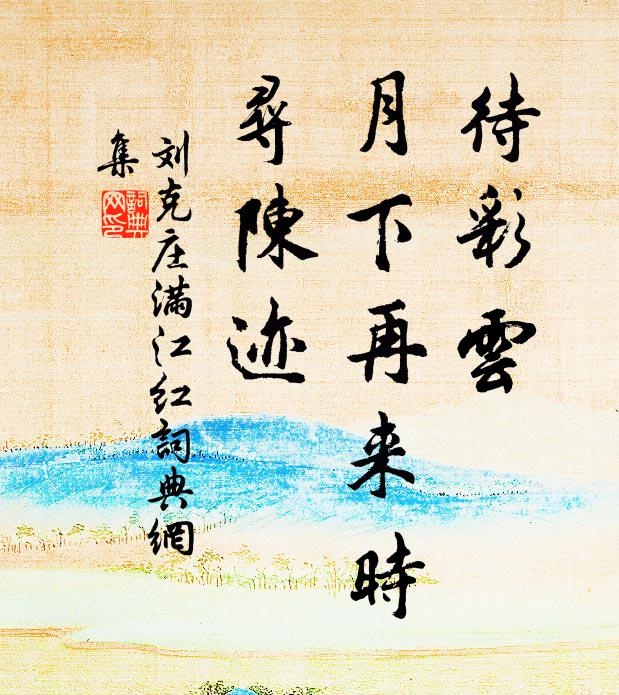 待彩雲
月下再来時
尋陳迹
刘克庄满江红詞典網
集
詞典
网印